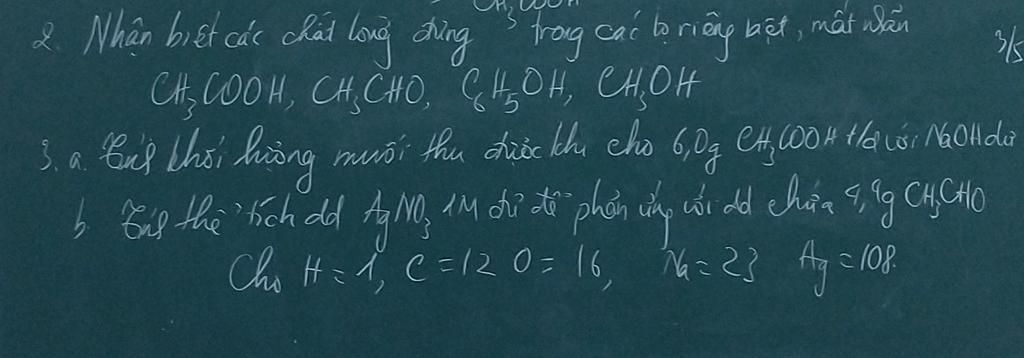 CH₃COOH
2. Nhận biết các chất lỏng đựng trong các lọ riêng biệt, mất nhãn
3/5
CH₃COOH, CH₃CHO, C₆H₅OH, CH₃OH
3. a. Tính khối lượng muối thu được khi cho 6,0g CH₃COOH t/d với NaOH dư
b. Tính thể tích dd AgNO₃ 1M đủ để phản ứng với dd chứa 4,4g CH₃CHO
Cho H = 1, C = 12 O = 16, Na = 23 Ag = 108.